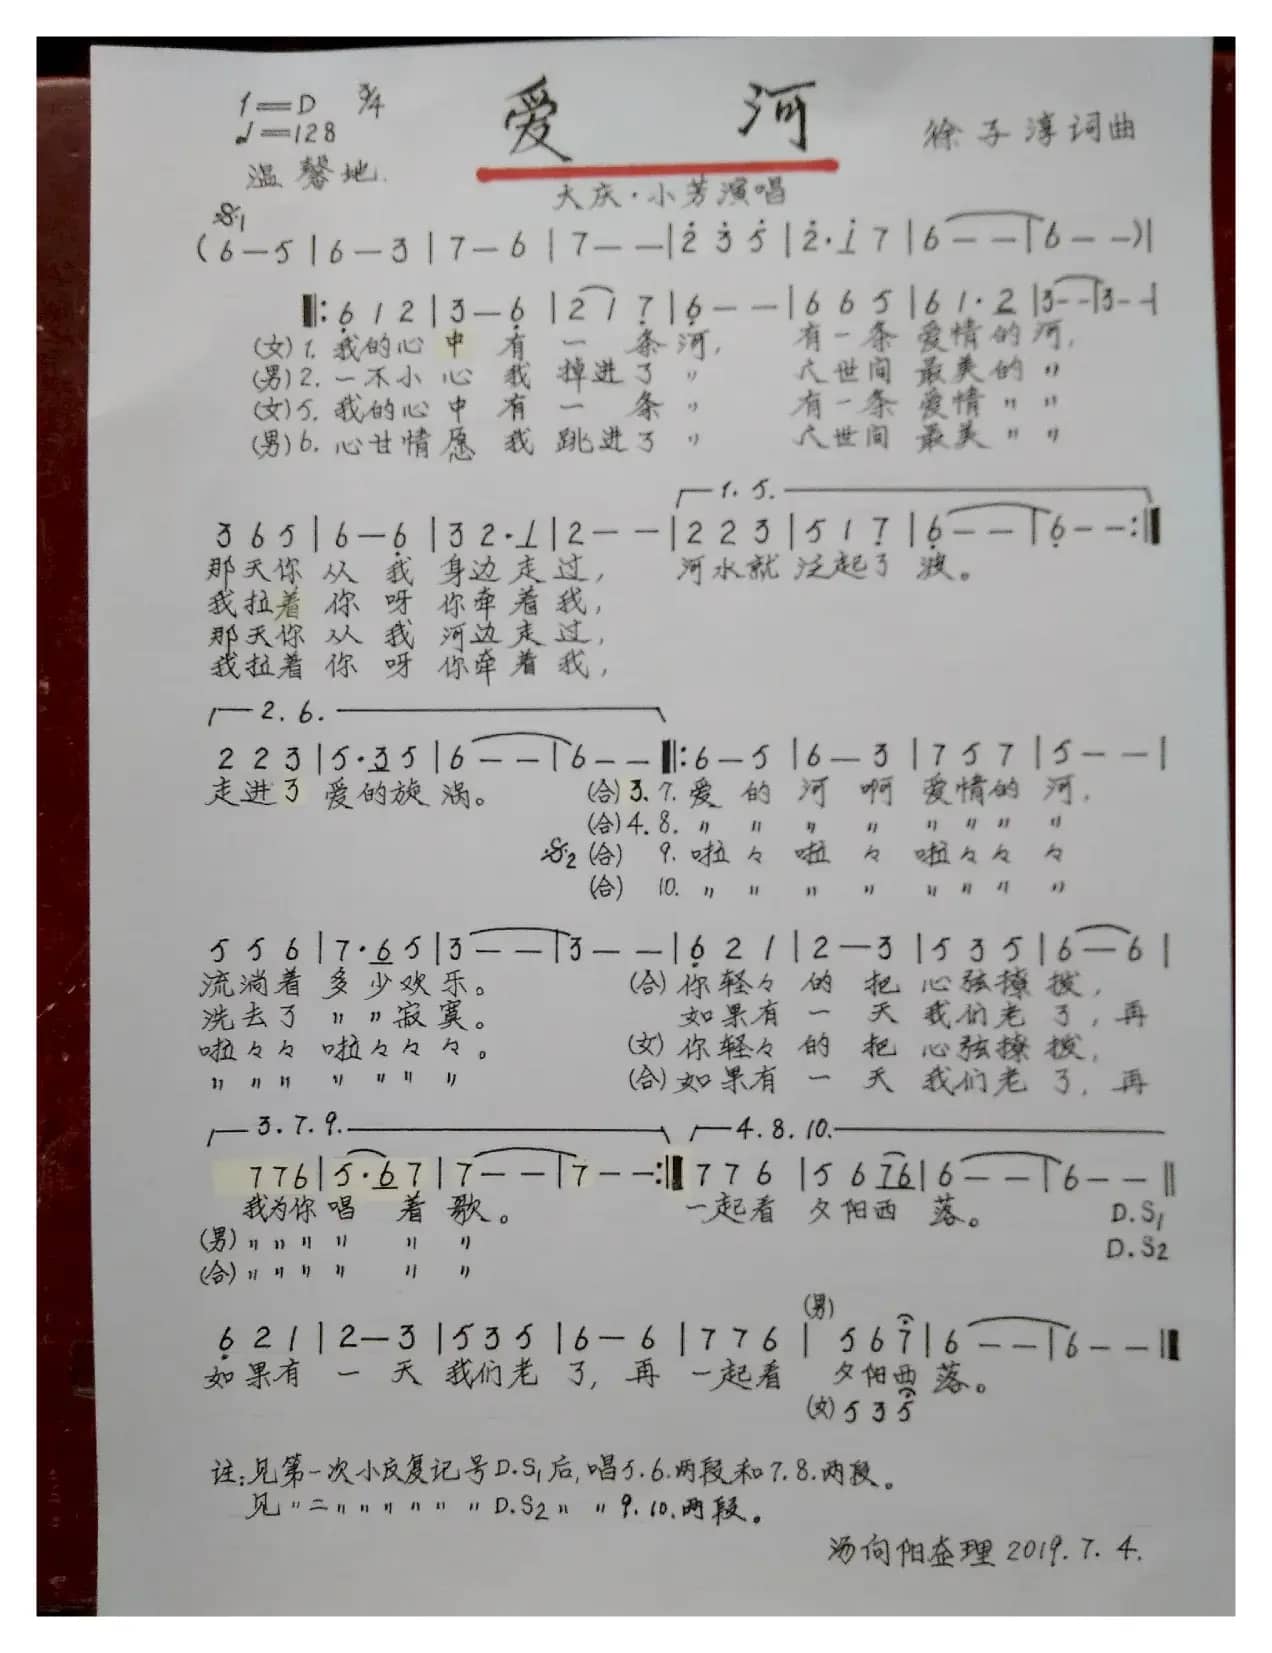 1=D 3/4
♩=128
温馨地.
爱 河
徐子淳词曲
大庆·小芳演唱
𝄋1
(6 — 5 | 6 — 3 | 7 — 6 | 7 — — | 2̇ 3̇ 5̇ | 2̇ · 1̇ 7 | 6 — — | 6 — —)|
‖: 6̣ 1 2 | 3 — 6̣ | 2 1 7̣ | 6̣ — — | 6 6 5 | 6 1 · 2 | 3 — — | 3 — — |
(女) 1. 我的心 中 有 一 条 河, 有一条 爱情的 河,
(男) 2. 一不小 心 我 掉进了 〃 人世间 最美的 〃
(女) 5. 我的心 中 有 一 条 〃 有一条 爱情 〃 〃
(男) 6. 心甘情 愿 我 跳进了 〃 人世间 最美 〃 〃
1. 5.
3 6 5 | 6 — 6̣ | 3 2 · 1 | 2 — — | 2 2 3 | 5 1 7̣ | 6̣ — — | 6̣ — — :‖
那天你 从 我 身边走过, 河水就 泛起了 波。
我拉着 你 呀 你牵着我,
那天你 从 我 河边走过,
我拉着 你 呀 你牵着我,
2. 6.
2 2 3 | 5 · 3 5 | 6 — — | 6 — — ‖: 6 — 5 | 6 — 3 | 7 5 7 | 5 — — |
走进了 爱的旋 涡。 (合) 3. 7. 爱 的 河 啊 爱情的 河,
(合) 4. 8. 〃 〃 〃 〃 〃 〃 〃 〃
𝄋2 (合) 9. 啦 々 啦 々 啦々々 々
(合) 10. 〃 〃 〃 〃 〃 〃 〃 〃
5 5 6 | 7 · 6 5 | 3 — — | 3 — — | 6̣ 2 1 | 2 — 3 | 5 3 5 | 6 — 6 |
流淌着 多少欢 乐。 (合) 你轻々 的 把 心弦撩 拨,
洗去了 〃 〃 寂 寞。 如果有 一 天 我们老 了, 再
啦々々 啦々々 々。 (女) 你轻々 的 把 心弦撩 拨,
〃 〃 〃 〃 〃 〃 〃 (合) 如果有 一 天 我们老 了, 再
3. 7. 9. 4. 8. 10.
7 7 6 | 5 · 6 7 | 7 — — | 7 — — :‖ 7 7 6 | 5 6 7 6 | 6 — — | 6 — — ‖
我为你 唱 着 歌。 一起看 夕阳西 落。 D.S1
(男) 〃 〃 〃 〃 〃 〃 D.S2
(合) 〃 〃 〃 〃 〃 〃
(男)
6̣ 2 1 | 2 — 3 | 5 3 5 | 6 — 6 | 7 7 6 | 5 6 7 | 6 — — | 6 — — ‖
如果有 一 天 我们老 了, 再 一起看 夕阳西 落。
(女) 5 3 5
注: 见第一次小反复记号D.S1后, 唱5.6.两段和7.8.两段。
见 〃 二 〃 〃 〃 〃 〃 〃 D.S2 〃 〃 9.10.两段。
汤向阳整理 2019.7.4.